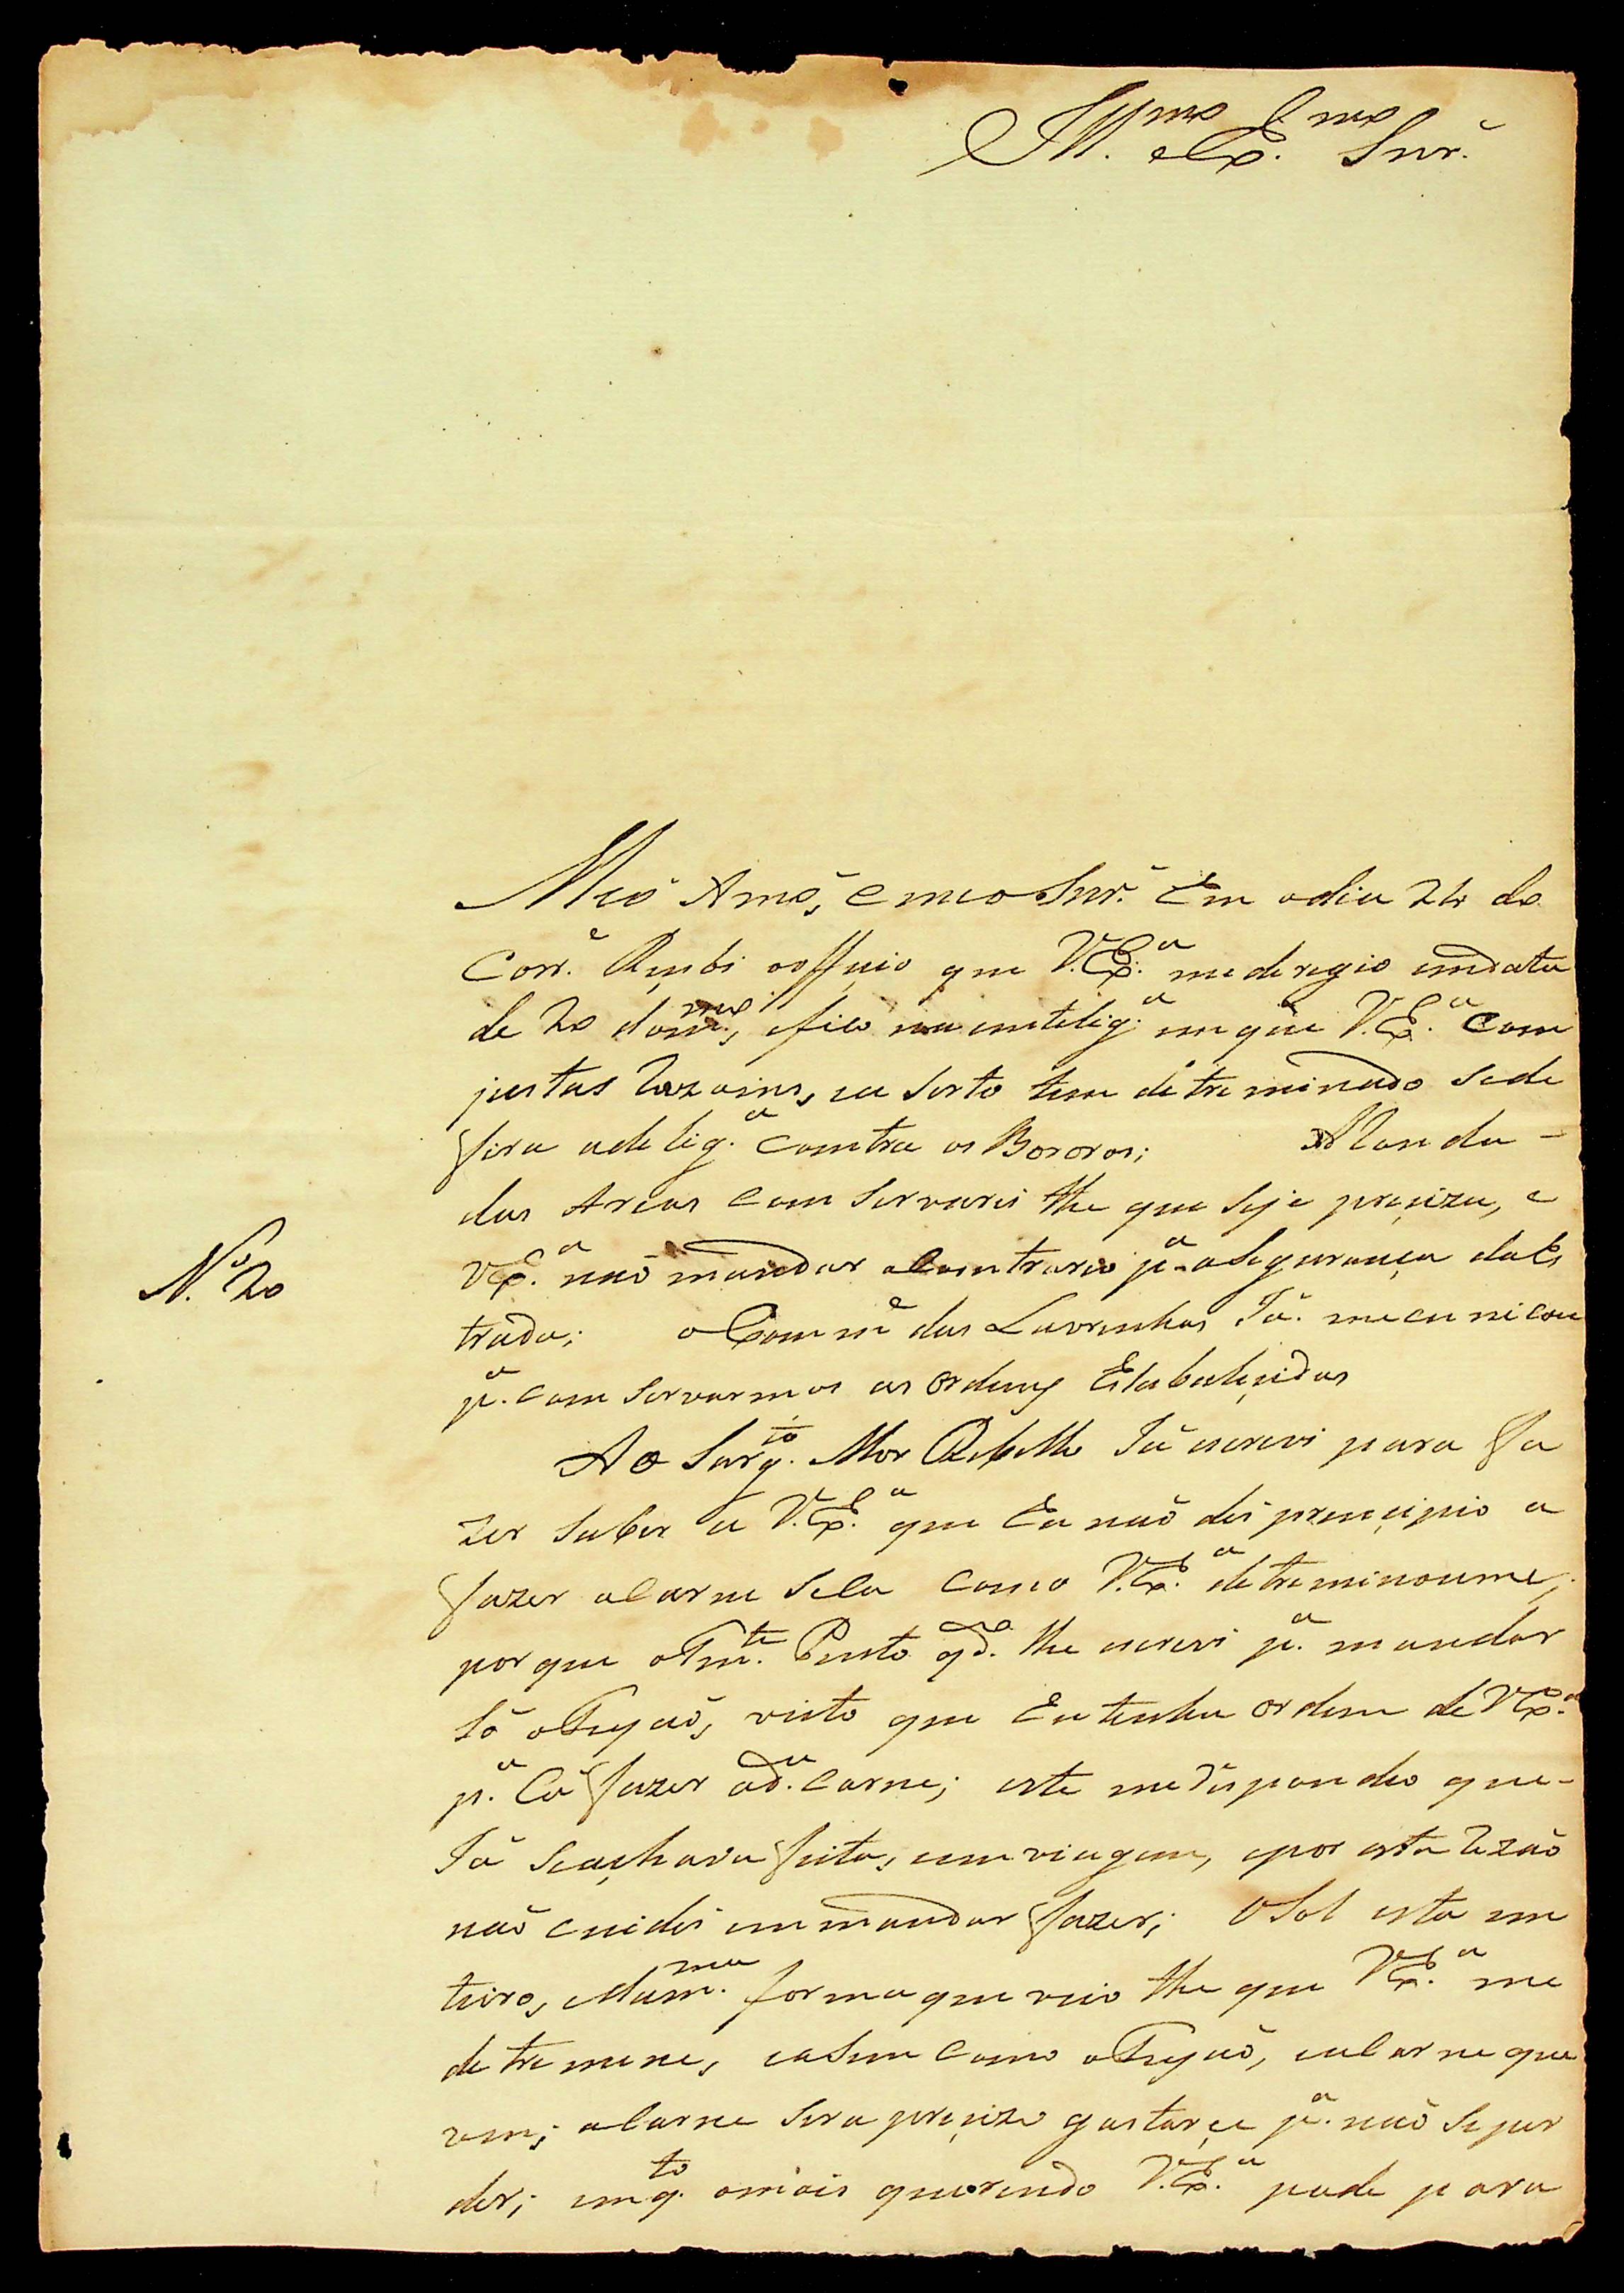 Ill.mo Ex.mo Snr.
Meo Amo, e meo Snr. Em o dia 24 do
Corr.e Reçebi oofficio que V.Ex.a mederegio emdata
de 20 dom.mo, efico na emtelig.a em que V.Ex.a Com
justas Razoins, ea Serto tem detreminado Sede
fira adelig.a Comtra os Bororos; Manda-
das Areas Com Servarei the que Seje preçizu, e
V.Ex.a naõ mandar oComtrario p.a aSegurança daEs
trada; oComm.e das Lavrinhas Já mecu nicou
p.a Com Servarmos as Ordens Estabaleçidas
N.o 20
Ao Sarg.to Mor Rebello Já escrevi para fa
zer Saber a V.Ex.a que Eu naõ dei prençipio a
fazer aCarne Seca Como V.Ex.a detreminoume,
porque oTen.te Pinto q.do lhe escrevi p.a mandar
Só oFeyjaõ, visto que Eu tenha Ordem de V.Ex.a
p.a Cá fazer ad.a Carne; este meRespondeo que-
Já Seaçhava feita, eem viagem, epor esta Rezaõ
naõ cuidei em mandar fazer; OSal esta em
teiro, eda m.ma forma que veio the que V.Ex.a me
detremene, eaSim Como oFeyjaõ, eaCarne que
vem; aCarne Sera preçizo gastarçe p.a naõ Seper
der; emq.to omais querendo V.Ex.a pode para